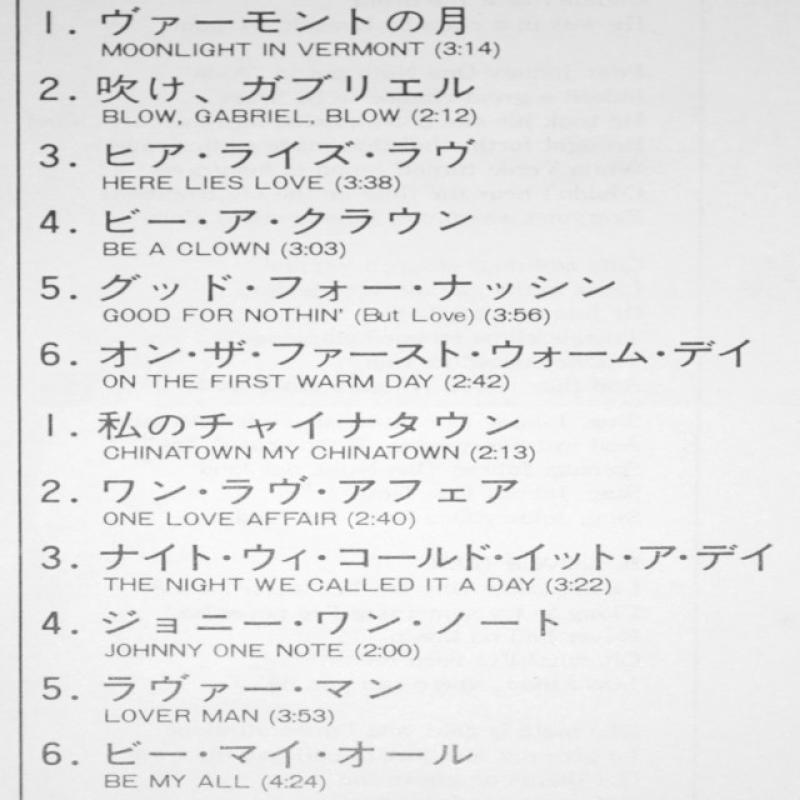 1. ヴァーモントの月
MOONLIGHT IN VERMONT (3:14)
2. 吹け、ガブリエル
BLOW, GABRIEL, BLOW (2:12)
3. ヒア・ライズ・ラヴ
HERE LIES LOVE (3:38)
4. ビー・ア・クラウン
BE A CLOWN (3:03)
5. グッド・フォー・ナッシン
GOOD FOR NOTHIN' (But Love) (3:56)
6. オン・ザ・ファースト・ウォーム・デイ
ON THE FIRST WARM DAY (2:42)
1. 私のチャイナタウン
CHINATOWN MY CHINATOWN (2:13)
2. ワン・ラヴ・アフェア
ONE LOVE AFFAIR (2:40)
3. ナイト・ウィ・コールド・イット・ア・デイ
THE NIGHT WE CALLED IT A DAY (3:22)
4. ジョニー・ワン・ノート
JOHNNY ONE NOTE (2:00)
5. ラヴァー・マン
LOVER MAN (3:53)
6. ビー・マイ・オール
BE MY ALL (4:24)